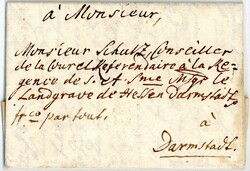 à Monsieur,
Monsieur Schutz Conseiller
de la Cour et Referendaire à la Re-
gence de S. A. Sme Msgr le
Landgrave de Hessen Darmstadt
frco par tout.
à
Darmstadt.